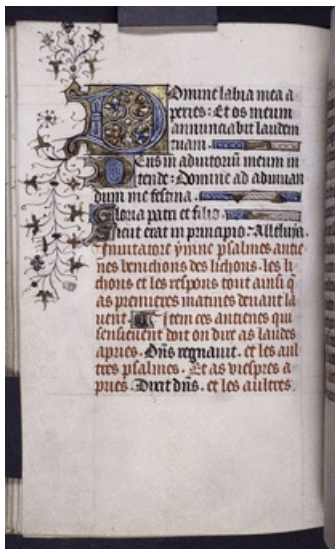 Domine labia mea a
peries: Et os meum
annunciabit laudem
tuam.
Deus in adiutoriu meum in
tende: Domine ad adiuuan
dum me festina.
Gloria patri et filio.
Sicut erat in principio. Alleluja.
Inuitatore ymne psalmes antie
nes benichons des lichons. les li
chons et les respons tout ainsi q
as premieres matines deuant la
uent. Item ces antienes qui
sensieuent doit on dire as laudes
apries. Dns regnauit. et les aul
tres psalmes. Et as viespres a
pries. Dixit dns. et les aultres